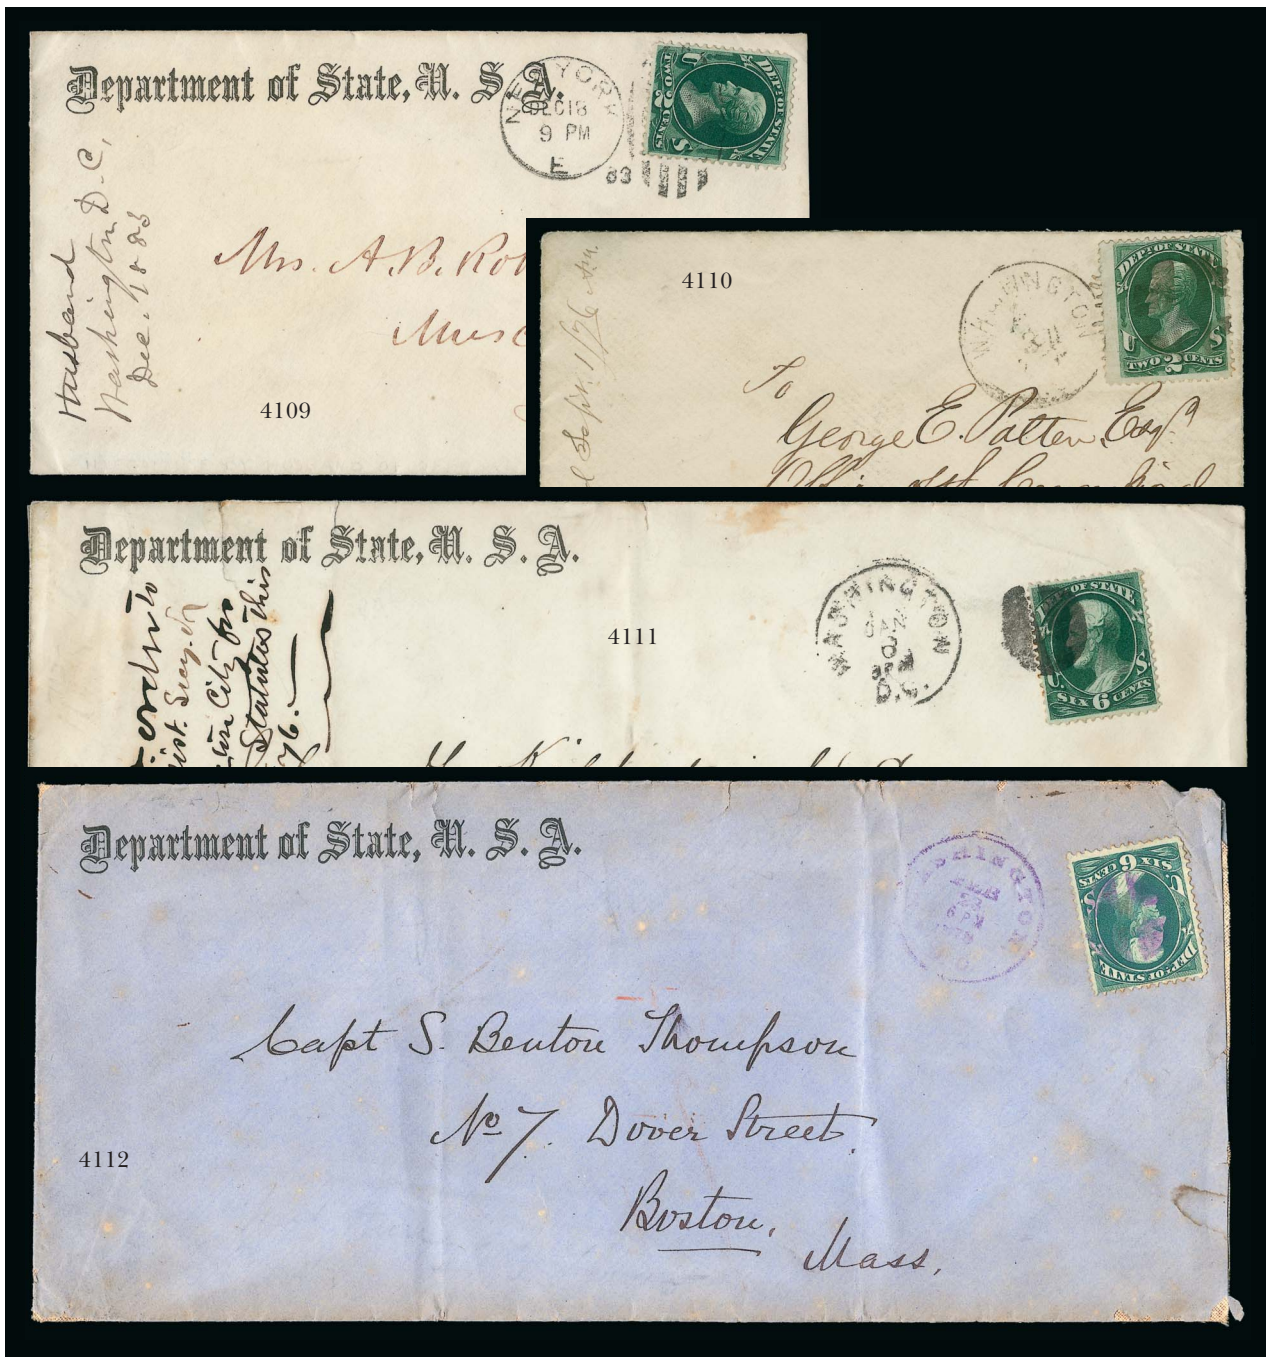 Department of State, U. S. A.
NEW YORK
DEC 18
9 PM
E
83
DEPT. OF STATE
U S
TWO 2 CENTS
Husband
Washington D. C.,
Dec. 1883
Mrs. A. B.
4109
4110
Sept. 1/76
WASHINGTON
DEPT. OF STATE
U S
TWO 2 CENTS
To
George E. Patten, Esqr
Department of State, U. S. A.
4111
WASHINGTON
JAN
6
D.C.
DEPT. OF STATE
U. S.
SIX 6 CENTS
City for
Statutes this
76.
Department of State, U. S. A.
WASHINGTON
FEB
DEPT. OF STATE
U. S.
SIX 6 CENTS
Capt S. Benton Thompson
No 7. Dover Street,
4112
Boston,
Mass.